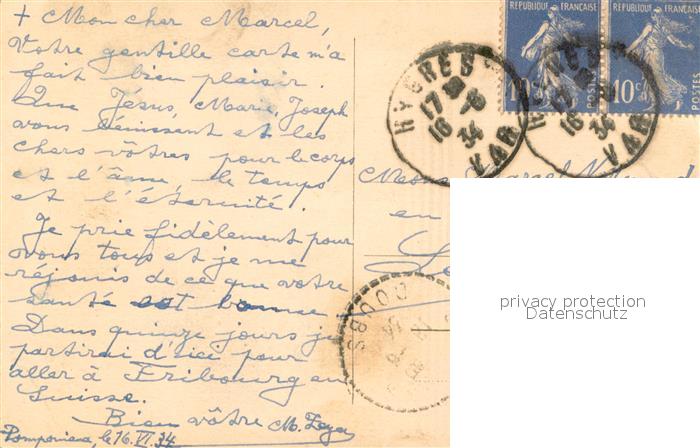 + Mon cher Marcel,
Votre gentille carte m'a
fait bien plaisir.
Que Jésus, Marie, Joseph
vous bénissent et les
chers vôtres pour le corps
et l'âme, le temps
et l'éternité.
Je prie fidèlement pour
vous tous et je me
réjouis de ce que votre
santé est bonne.
Dans quinze jours je
partirai d'ici pour
aller à Fribourg en
Suisse.
Bien vôtre M.
le 16. VI. 34
RÉPUBLIQUE FRANÇAISE
10c
POSTES
RÉPUBLIQUE FRANÇAISE
10c
POSTES
HYERES
17
16 - 6
34
VAR
HYERES
17
16 - 6
34
VAR
Marcel
en
DOUBS
privacy protection
Datenschutz